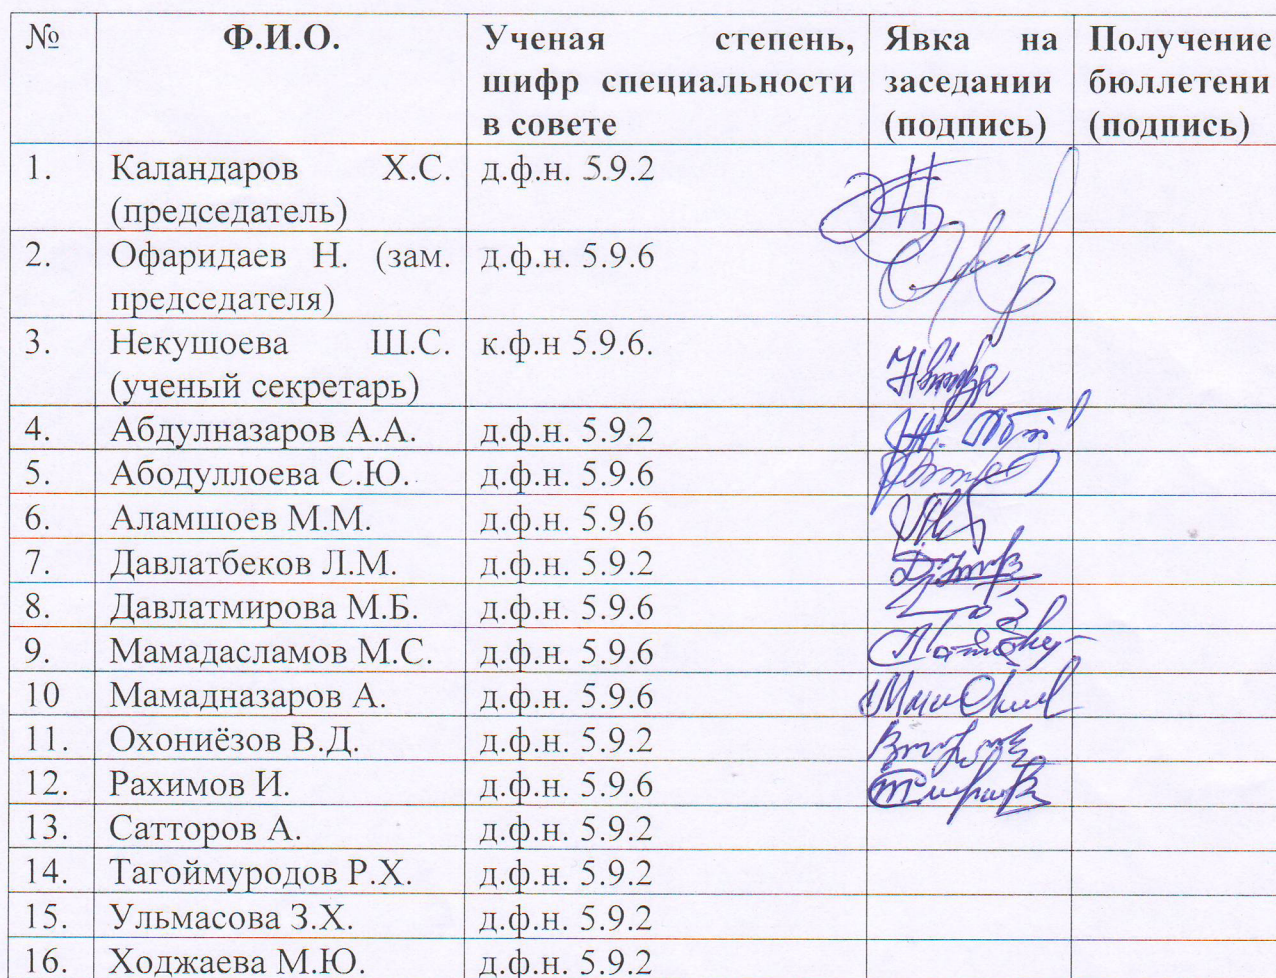 № Ф.И.О. Ученая степень, шифр специальности в совете Явка на заседании (подпись) Получение бюллетени (подпись)
1. Каландаров Х.С. (председатель) д.ф.н. 5.9.2
2. Офаридаев Н. (зам. председателя) д.ф.н. 5.9.6
3. Некушоева Ш.С. (ученый секретарь) к.ф.н 5.9.6.
4. Абдулназаров А.А. д.ф.н. 5.9.2
5. Абодуллоева С.Ю. д.ф.н. 5.9.6
6. Аламшоев М.М. д.ф.н. 5.9.6
7. Давлатбеков Л.М. д.ф.н. 5.9.2
8. Давлатмирова М.Б. д.ф.н. 5.9.6
9. Мамадасламов М.С. д.ф.н. 5.9.6
10 Мамадназаров А. д.ф.н. 5.9.6
11. Охониёзов В.Д. д.ф.н. 5.9.2
12. Рахимов И. д.ф.н. 5.9.6
13. Сатторов А. д.ф.н. 5.9.2
14. Тагоймуродов Р.Х. д.ф.н. 5.9.2
15. Ульмасова З.Х. д.ф.н. 5.9.2
16. Ходжаева М.Ю. д.ф.н. 5.9.2